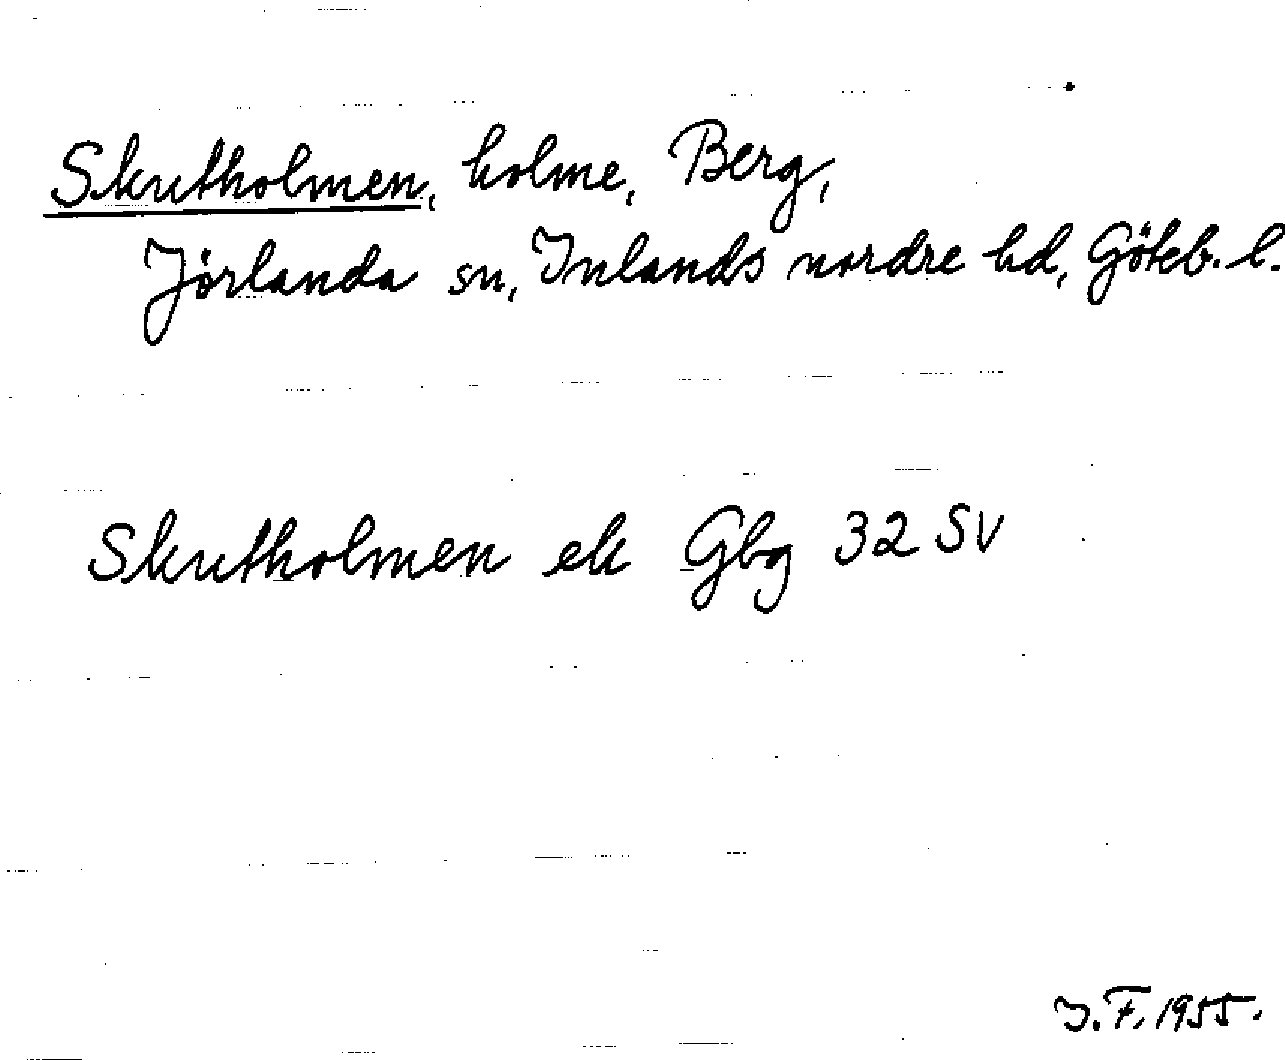 Skutholmen, holme, Berg,
Jörlanda sn, Inlands nordre hd, Göteb. l.
Skutholmen ek Gbg 32 SV
J.F. 1955.